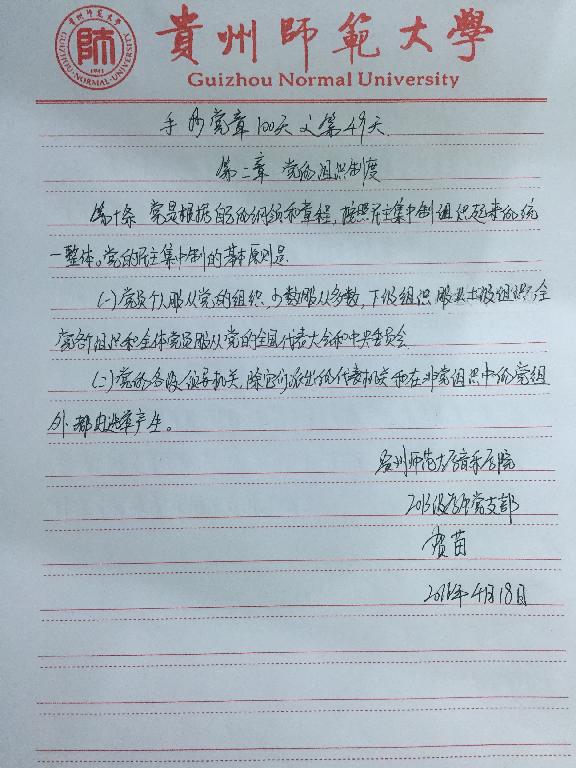 貴州師範大學
Guizhou Normal University
貴州師範大學
師
1941
GUIZHOU·NORMAL·UNIVERSITY
手抄党章100天之第49天
第二章 党的组织制度
第十条 党是根据自己的纲领和章程，按照民主集中制组织起来的统
一整体。党的民主集中制的基本原则是
(一)党员个人服从党的组织，少数服从多数，下级组织服从上级组织，全
党各个组织和全体党员服从党的全国代表大会和中央委员会
(二)党的各级领导机关，除它们派出的代表机关和在非党组织中的党组
外，都由选举产生。
贵州师范大学音乐学院
2013级学生党支部
贺苗
2016年4月18日